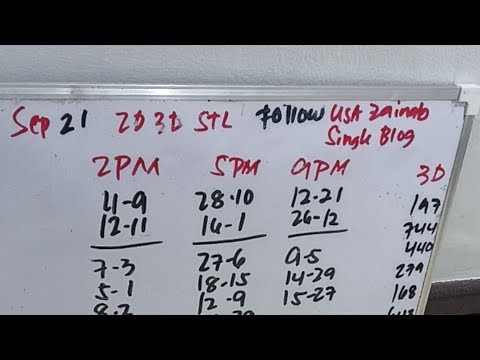 Sep 21 2D 3D STL Follow USA Zainab
Single Blog
2PM 5PM 9PM 3D
11-9 28-10 12-21 197
12-11 16-1 26-12 744
440
7-3 27-6 9-5 279
5-1 18-15 14-29 168
8-2 12-9 15-27